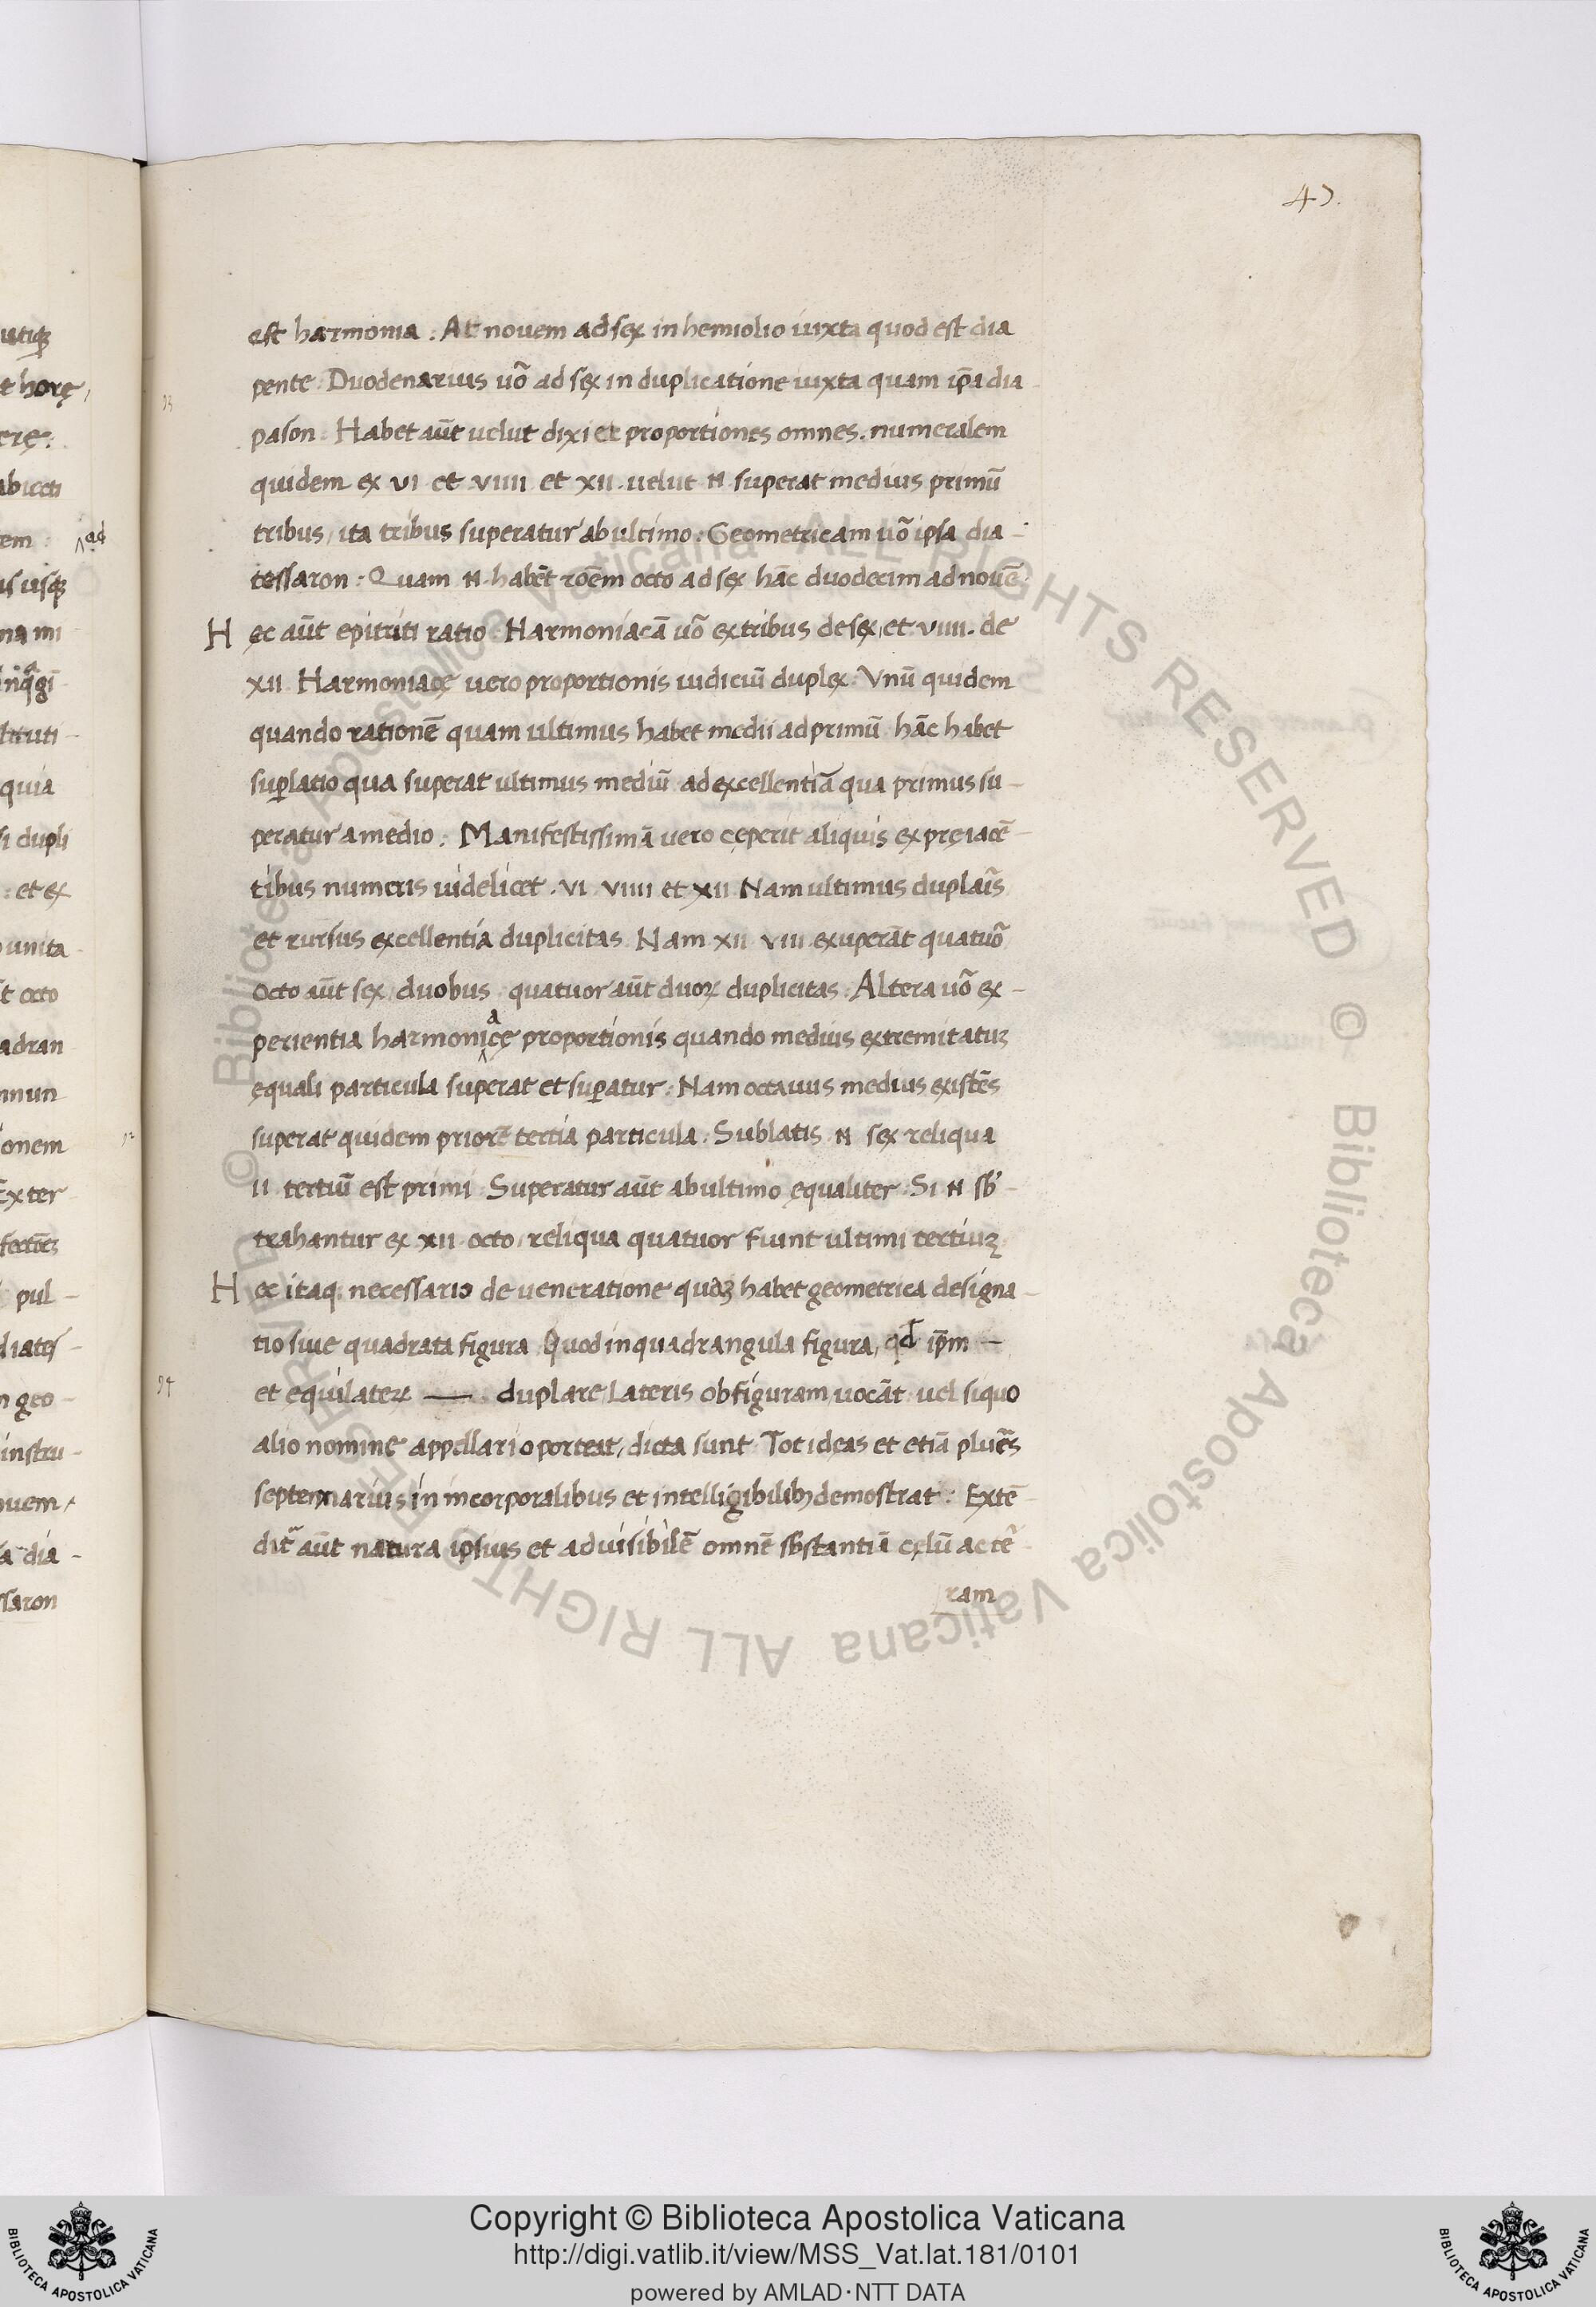 47.
est harmonia : At novem ad sex in hemiolio iuxta quod est dia
pente : Duodenarius uõ ad sex in duplicatione iuxta quam ip̃a dia -
pason : Habet aũt uelut dixi et proportiones omnes . numeralem
quidem ex VI et VIIII et XII . uelut N superat medius primũ
tribus / ita tribus superatur ab ultimo : Geometricam uõ ipsa dia -
tessaron : Quam N habẽt rõem octo ad sex hãc duodecim ad nouẽ
Hęc aũt epitriti ratio : Harmoniacã uõ ex tribus de sex , et VIIII . de
XII Harmoniacę uero proportionis iudiciũ duplex : Vnũ quidem
quando rationẽ quam ultimus habet medii ad primũ hãc habet
sup̱latio qua superat ultimus mediũ ad excellentiã qua primus su -
peratur a medio : Manifestissimã uero cęperit aliquis ex pręiacẽ -
tibus numeris uidelicet . VI VIIII et XII Nam ultimus
et rursus excellentia duplicitas Nam XII VIII exuperãt quatuõ
Octo aũt sex / duobus quatuor aũt duoꝝ duplicitas : Altera uõ ex -
perientia harmoniacę proportionis quando medius extremitatuʒ
ęquali particula superat et sup̱atur : Nam octauus medius existẽs
superat quidem priorẽ tertia particula : Sublatis N sex reliqua
II tertiũ est primi Superatur aũt ab ultimo ęqualiter : Si N sb' -
trahantur ex XII octo / reliqua quatuor fiunt ultimi tertiuʒ
Hęc itaq: necessario de ueneratione quãʒ habet geometrica designa -
tio siue quadrata figura Quod in quadrangula figura , qd̃ ip̃m —
et equilateꝝ — . duplare Lateris ob figuram uocãt uel siquo
alio nomine appellari oporteat , dicta sunt Tot ideas et etiã plurẽs
septennarius in incorporalibus et intelligibilibʒ demostrat : Extẽ -
dit̃ aũt natura ipsius et ad uisibilẽ omnẽ sb̃stantiã cęlũ ac tẽr
ram
93
92
94
Copyright © Biblioteca Apostolica Vaticana
http://digi.vatlib.it/view/MSS_Vat.lat.181/0101
powered by AMLAD·NTT DATA
BIBLIOTECA APOSTOLICA VATICANA
BIBLIOTECA APOSTOLICA VATICANA
© Biblioteca Apostolica Vaticana ALL RIGHTS RESERVED
© Biblioteca Apostolica Vaticana ALL RIGHTS RESERVED